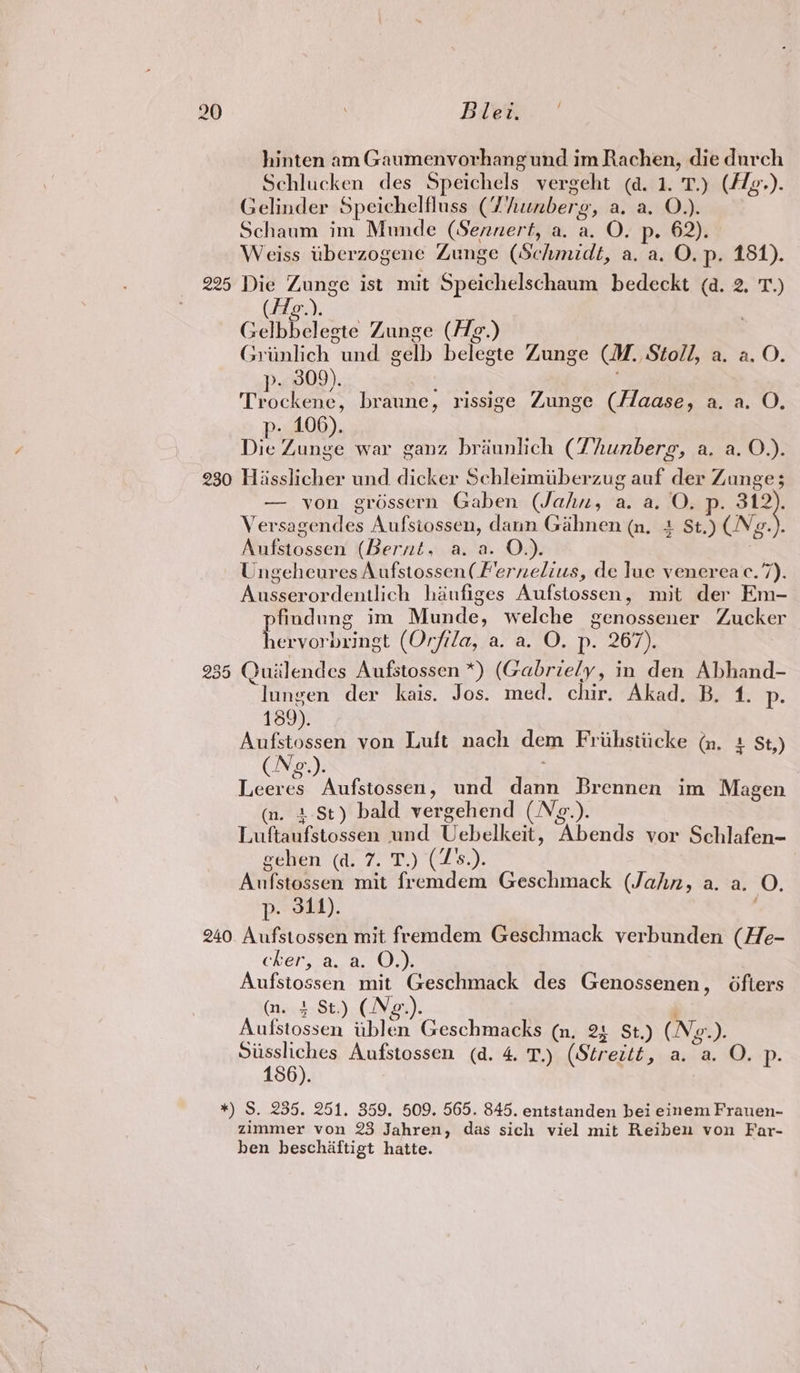 20 Blei.
hinten am Gaumenvorhang und im Rachen, die durch
Schlucken des Speichels vergeht (d. 1. T.) (Hg.).
Gelinder Speichelfluss (Thunberg, a. a. O.).
Schaum im Munde (Sennert, a. a. O. p. 62).
Weiss überzogene Zunge (Schmidt, a. a. O. p. 181).
225 Die Zunge ist mit Speichelschaum bedeckt (d. 2. T.)
(Hg.).
Gelbbelegte Zunge (Hg.)
Grünlich und gelb belegte Zunge (M. Stoll, a. a. O.
p. 309).
Trockene, braune, rissige Zunge (Haase, a. a. O.
p. 106).
Die Zunge war ganz bräunlich (Thunberg, a. a. O.).
230 Hässlicher und dicker Schleimüberzug auf der Zunge;
— von grössern Gaben (Jahn, a. a. O. p. 312).
Versagendes Aufstossen, dann Gähnen (n. ½ St.) (Ng.).
Aufstossen (Bernt, a. a. O.).
Ungeheures Aufstossen (Fernelius, de lue venerea c. 7).
Ausserordentlich häufiges Aufstossen, mit der Em-
pfindung im Munde, welche genossener Zucker
hervorbringt (Orfila, a. a. O. p. 267).
235 Quälendes Aufstossen *) (Gabriely, in den Abhand-
lungen der kais. Jos. med. chir. Akad. B. 1. p.
189).
Aufstossen von Luft nach dem Frühstücke (n. ½ St.)
(Ng.).
Leeres Aufstossen, und dann Brennen im Magen
(n. ½ St) bald vergehend (Ng.).
Luftaufstossen und Uebelkeit, Abends vor Schlafen-
gehen (d. 7. T.) (Ts.).
Aufstossen mit fremdem Geschmack (Jahn, a. a. O.
p. 311).
240 Aufstossen mit fremdem Geschmack verbunden (He-
cker, a. a. O.).
Aufstossen mit Geschmack des Genossenen, öfters
(n. ½ St.) (Ng.).
Aufstossen üblen Geschmacks (n. 2½ St.) (Ng.).
Süssliches Aufstossen (d. 4. T.) (Streitt, a. a. O. p.
186).
*) S. 235. 251. 359. 509. 565. 845. entstanden bei einem Frauen-
zimmer von 23 Jahren, das sich viel mit Reiben von Far-
ben beschäftigt hatte.